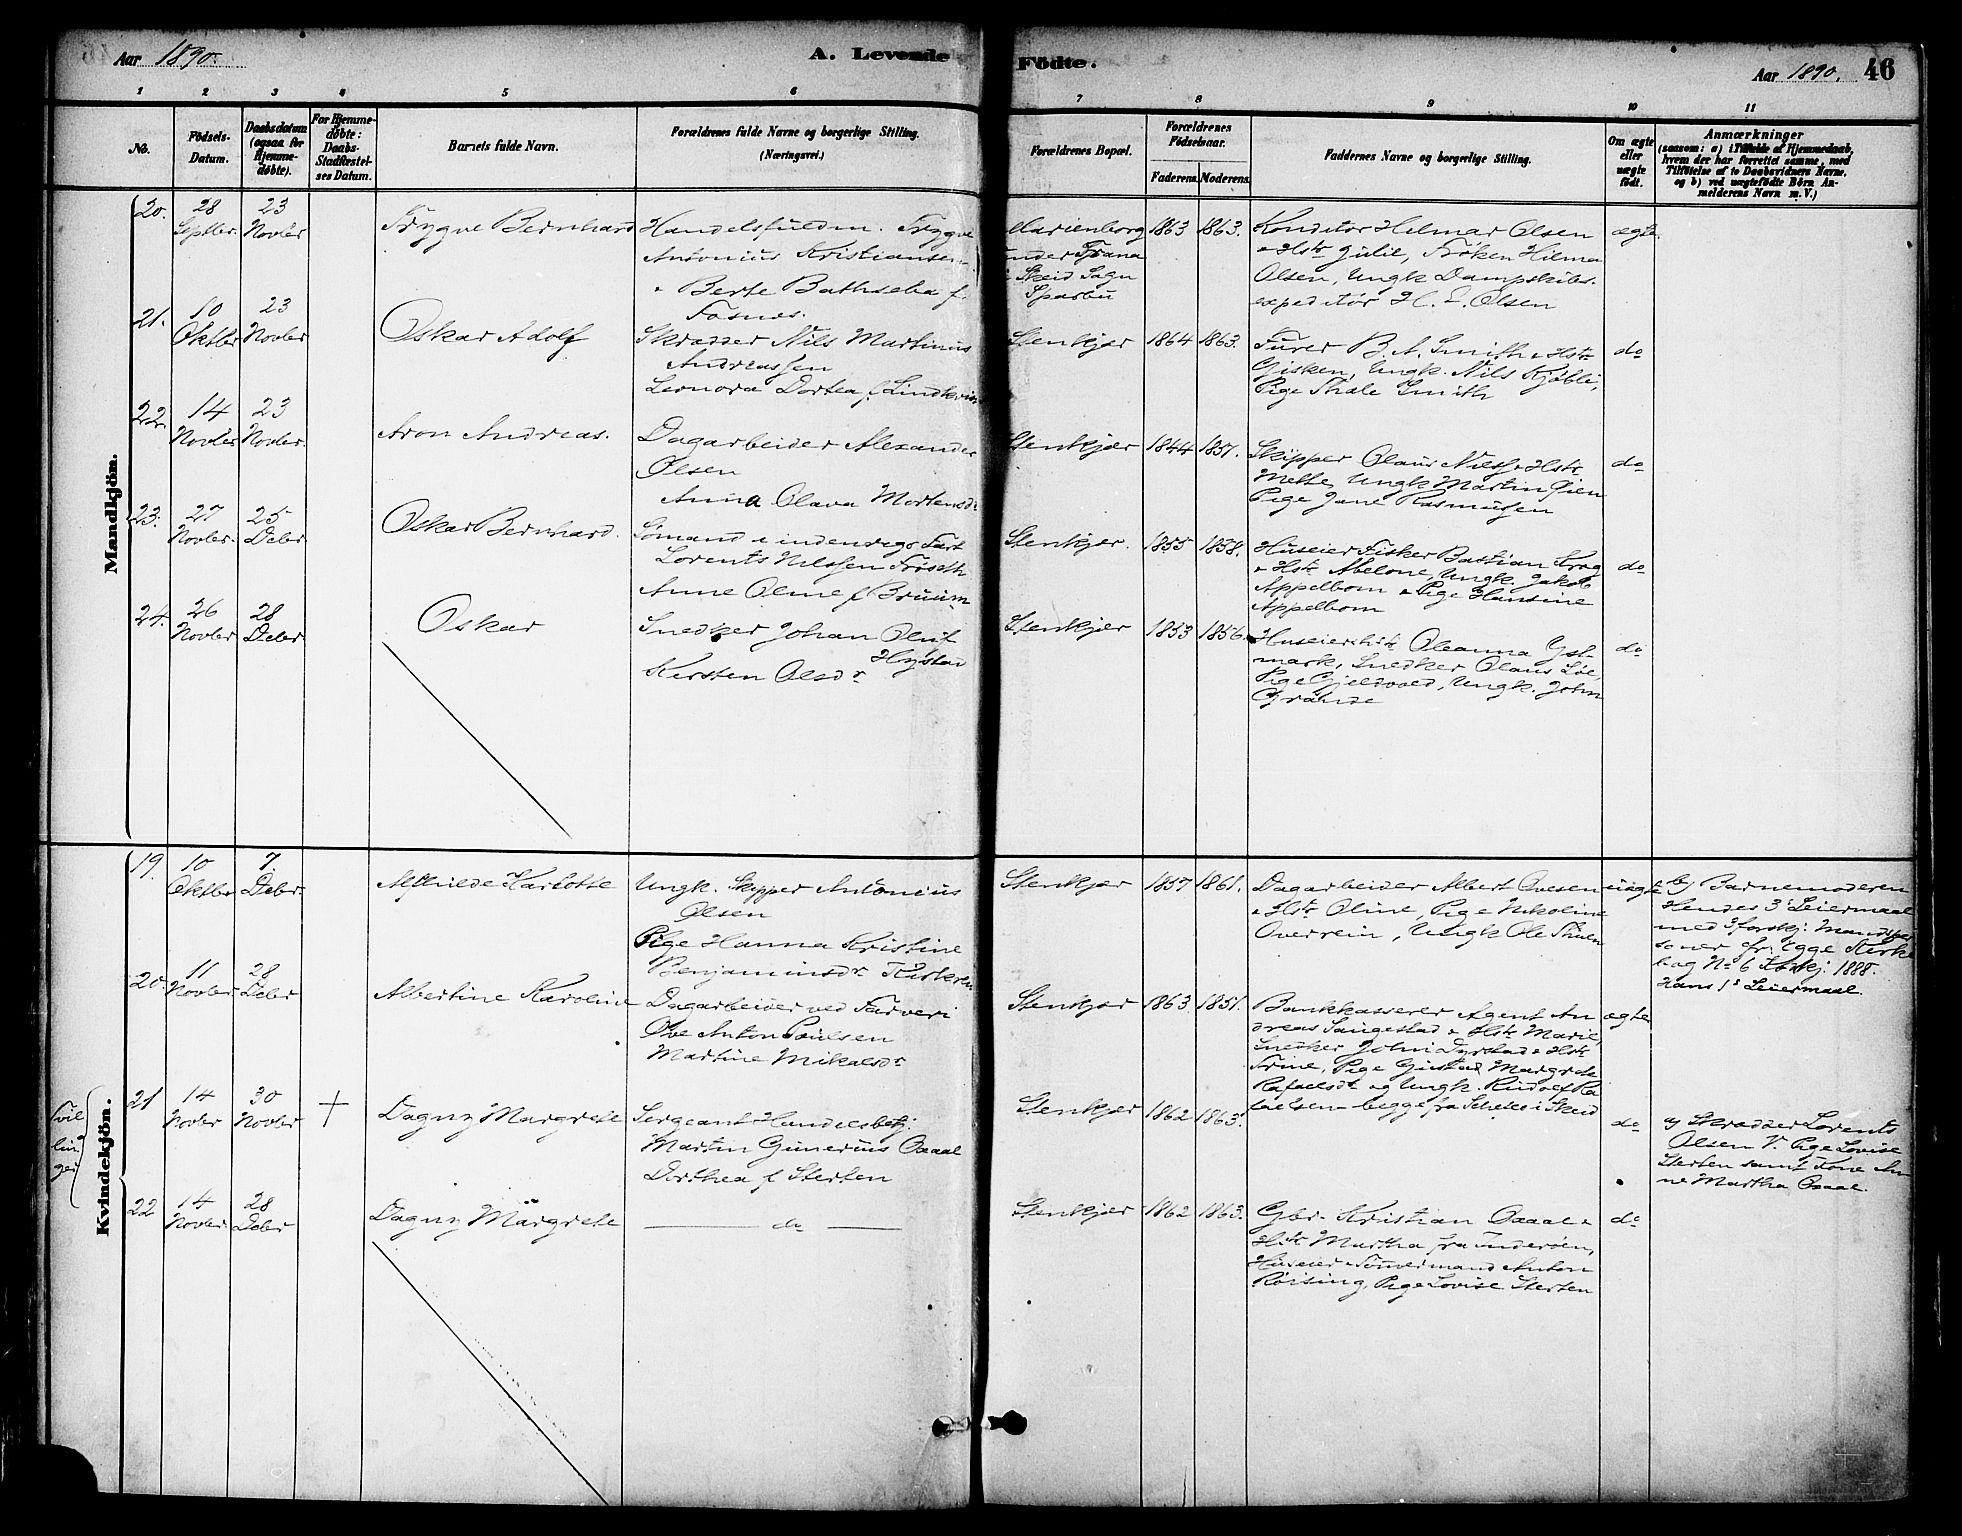 Aar 1890.
A. Levende Födte.
Aar 1890.
46
1 2 3 4 5 6 7 8 9 10 11
No.
Födsels-
Datum.
Daabsdatum
(ogsaa for
Hjemme-
döbte).
For Hjemme-
döbte:
Daabs-
Stadfæstel-
ses Datum.
Barnets fulde Navn.
Forældrenes fulde Navne og borgerlige Stilling.
(Næringsvei.)
Forældrenes Bopæl.
Forældrenes
Födselsaar.
Faderens. Moderens.
Faddernes Navne og borgerlige Stilling.
Om ægte
eller
uægte
født.
Anmærkninger
(saasom: a) i Tilfælde af Hjemmedaab,
hvem der har forrettet samme, med
Tilföielse af to Daabsvidners Navne,
og b) ved uægtefödte Börn An-
melderens Navn m. V.)
Mandkjön.
20.
28
Septber
23
Novber
Trygve Bernhard
Handelsfuldm. Trygve
Antonius Kristiansen
Berte Bathseba f.
Fosnes.
Marienborg
under Trana
Skeid Sogn
Sparbu
1863 1863.
Konditor Hilmar Olsen
& Hstr Julie, Frøken Hilma
Olsen, Ungk Dampskibs-
expeditør H. L. Olsen
ægte
21.
10
Oktber
23
Novber
Oskar Adolf
Skrædder Nils Martinus
Andreassen
Leonora Dortea f. Lindkvist
Stenkjær
1864 1863.
Furer B. A. Smith & Hstr
Gisken, Ungk. Nils Kjøbli,
Pige Thale Smith
do
22.
14
Novber
23
Novber
Aron Andreas.
Dagarbeider Alexander
Olsen
Anna Olava Mortensdr
Stenkjær
1844 1851.
Skipper Olaus Nilss & Hstr
Mette, Ungk Martin Øien
Pige Jane Rasmusen
do
23.
27
Novber.
25
Deber
Oskar Bernhard.
Sømand i indenrigs Fart
Lorents Nilssen Frøseth
Anne Oline f Bruum
Stenkjær.
1855 1858.
Huseier Fisker Bastian Krog
& Hstr Abelone, Ungk. Jakob
Appelbom & Pige Hansine
Appelbom
do
24.
26
Novber
28
Deber
Oskar
Snedker Johan Oluf
Hystad
Kirsten Olsdr
Stenkjær
1853 1856.
Huseierhstr Oleanna Yst-
mark, Snedker Olaus Løe,
Pige Gjeldvold, Ungk. John
Grande
do
Kvindekjön.
19.
10
Oktber
7
Deber
Alfhilde Karlotte
Ungk. Skipper Antonius
Olsen
Pige Hanna Kristine
Benjaminsdr
Stenkjær
1857 1861.
Dagarbeider Albert Ovesen
& Hstr Oline, Pige Nikoline
Overrein, Ungk Ole
uægte
b) Barnemoderen
Hendes 3' Leiermaal
med 3 forskj. Mandsper
soner cfr. Egge Kirke
bog No 6 1888.
Hans 1' Leiermaal.
20.
11
Novber
28
Deber
Albertine Karoline
Dagarbeider ved Farveri
Ove Anton Paulsen
Martine Mikalsdr
Stenkjær
1863 1851.
Bankkasserer Agent An
dreas Saugestad & Hstr Marie,
Snedker John Dyrstad & Hstr
Trine, Pige Margrete
Rafaelsdr og Ungk. Rudolf Ra
faelsen begge fra i Skeid
ægte
Tvil
lin
ger
21
14
Novber
30
Novber
+
Dagny Margrete
Sergeant Handelsbetj.
Martin Gunerius Oxaal
Dorthea f Sterten
Stenkjær
1862 1863.
do
a) Skrædder Lorents
Olsen V. Pige Lovise
Sterten samt Kone An
ne Martha Oxaal.
22
14
Novber
28
Deber
Dagny Margrete
do
Stenkjær
1862 1863.
Gbr. Kristian Oxaal &
Hstr Martha fra Inderøen,
Huseier & Tømmermand Anton
Røising, Pige Lovise Sterten
do